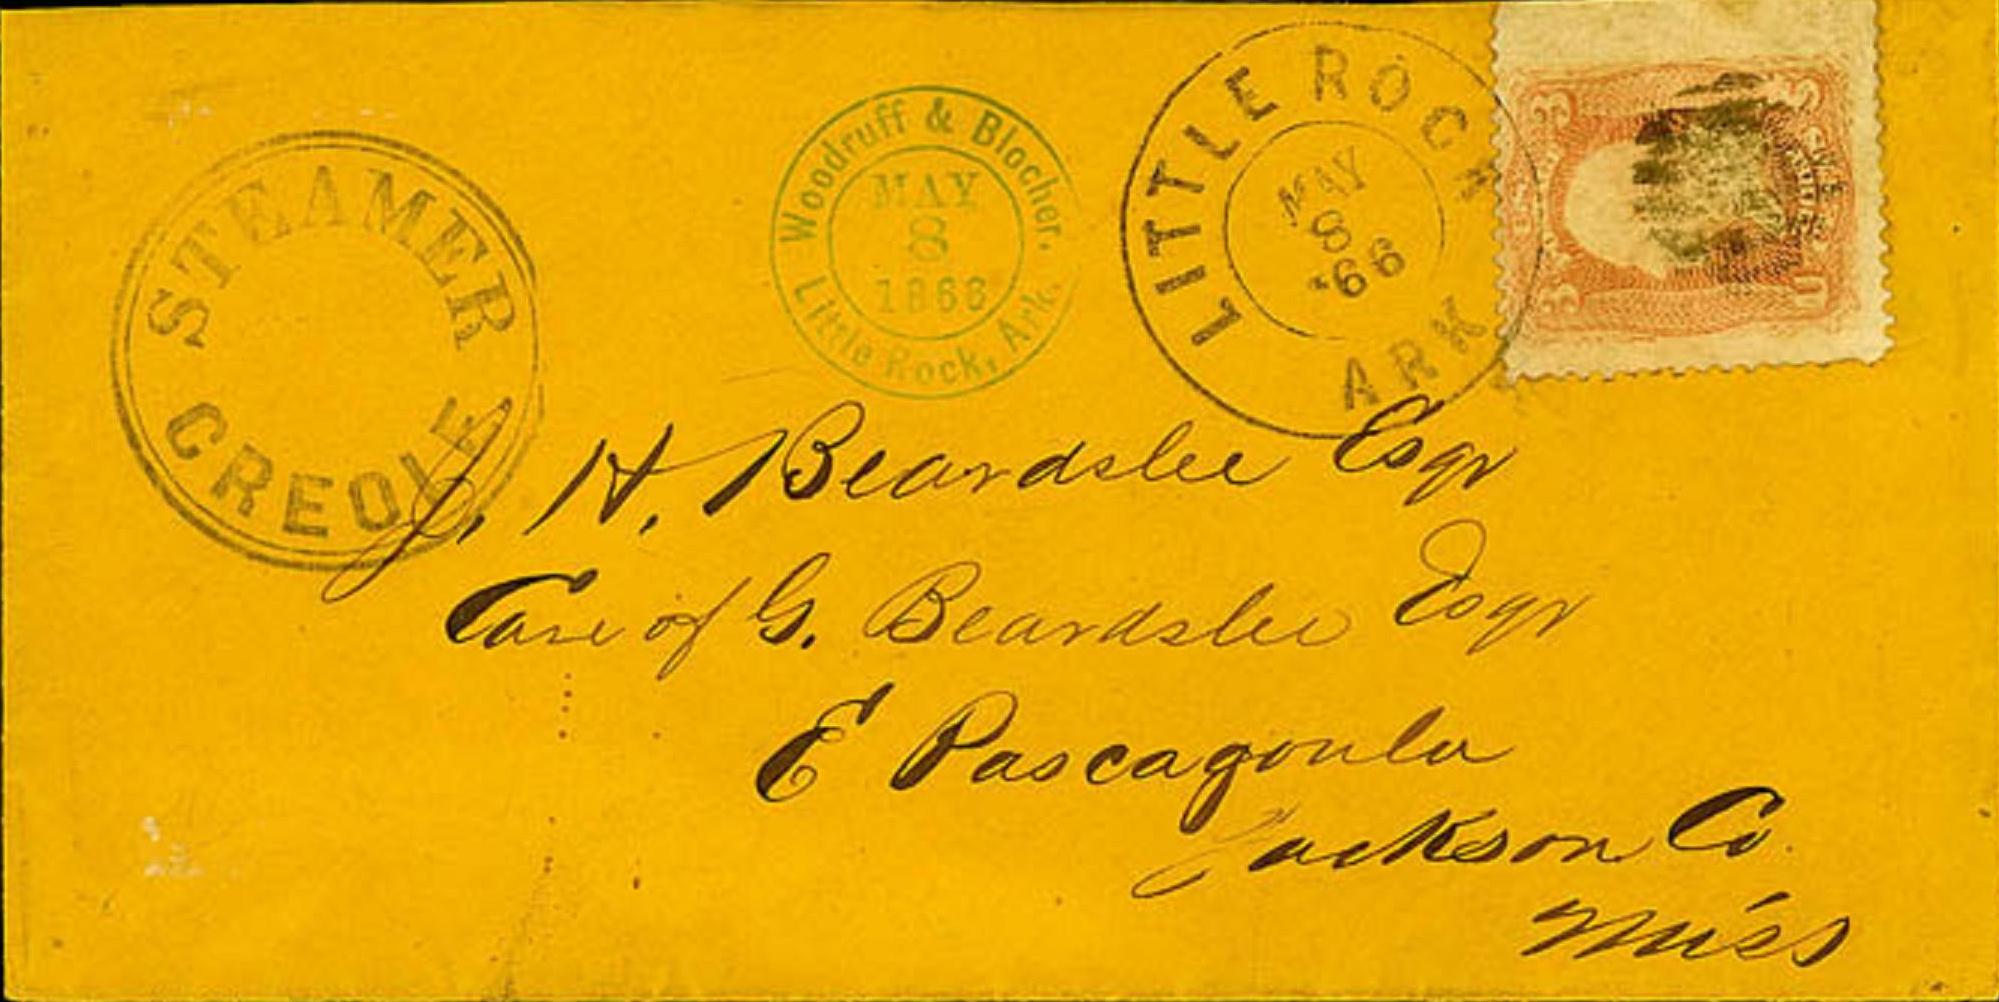 STEAMER
CREOLE
Woodruff & Blocher.
MAY
8
1866
Little Rock, Ark.
LITTLE ROCK
MAY
8
'66
ARK
3
3
J. H. Beardslee Esqr
Care of G. Beardslee Esqr
E Pascagoula
Jackson Co.
Miss